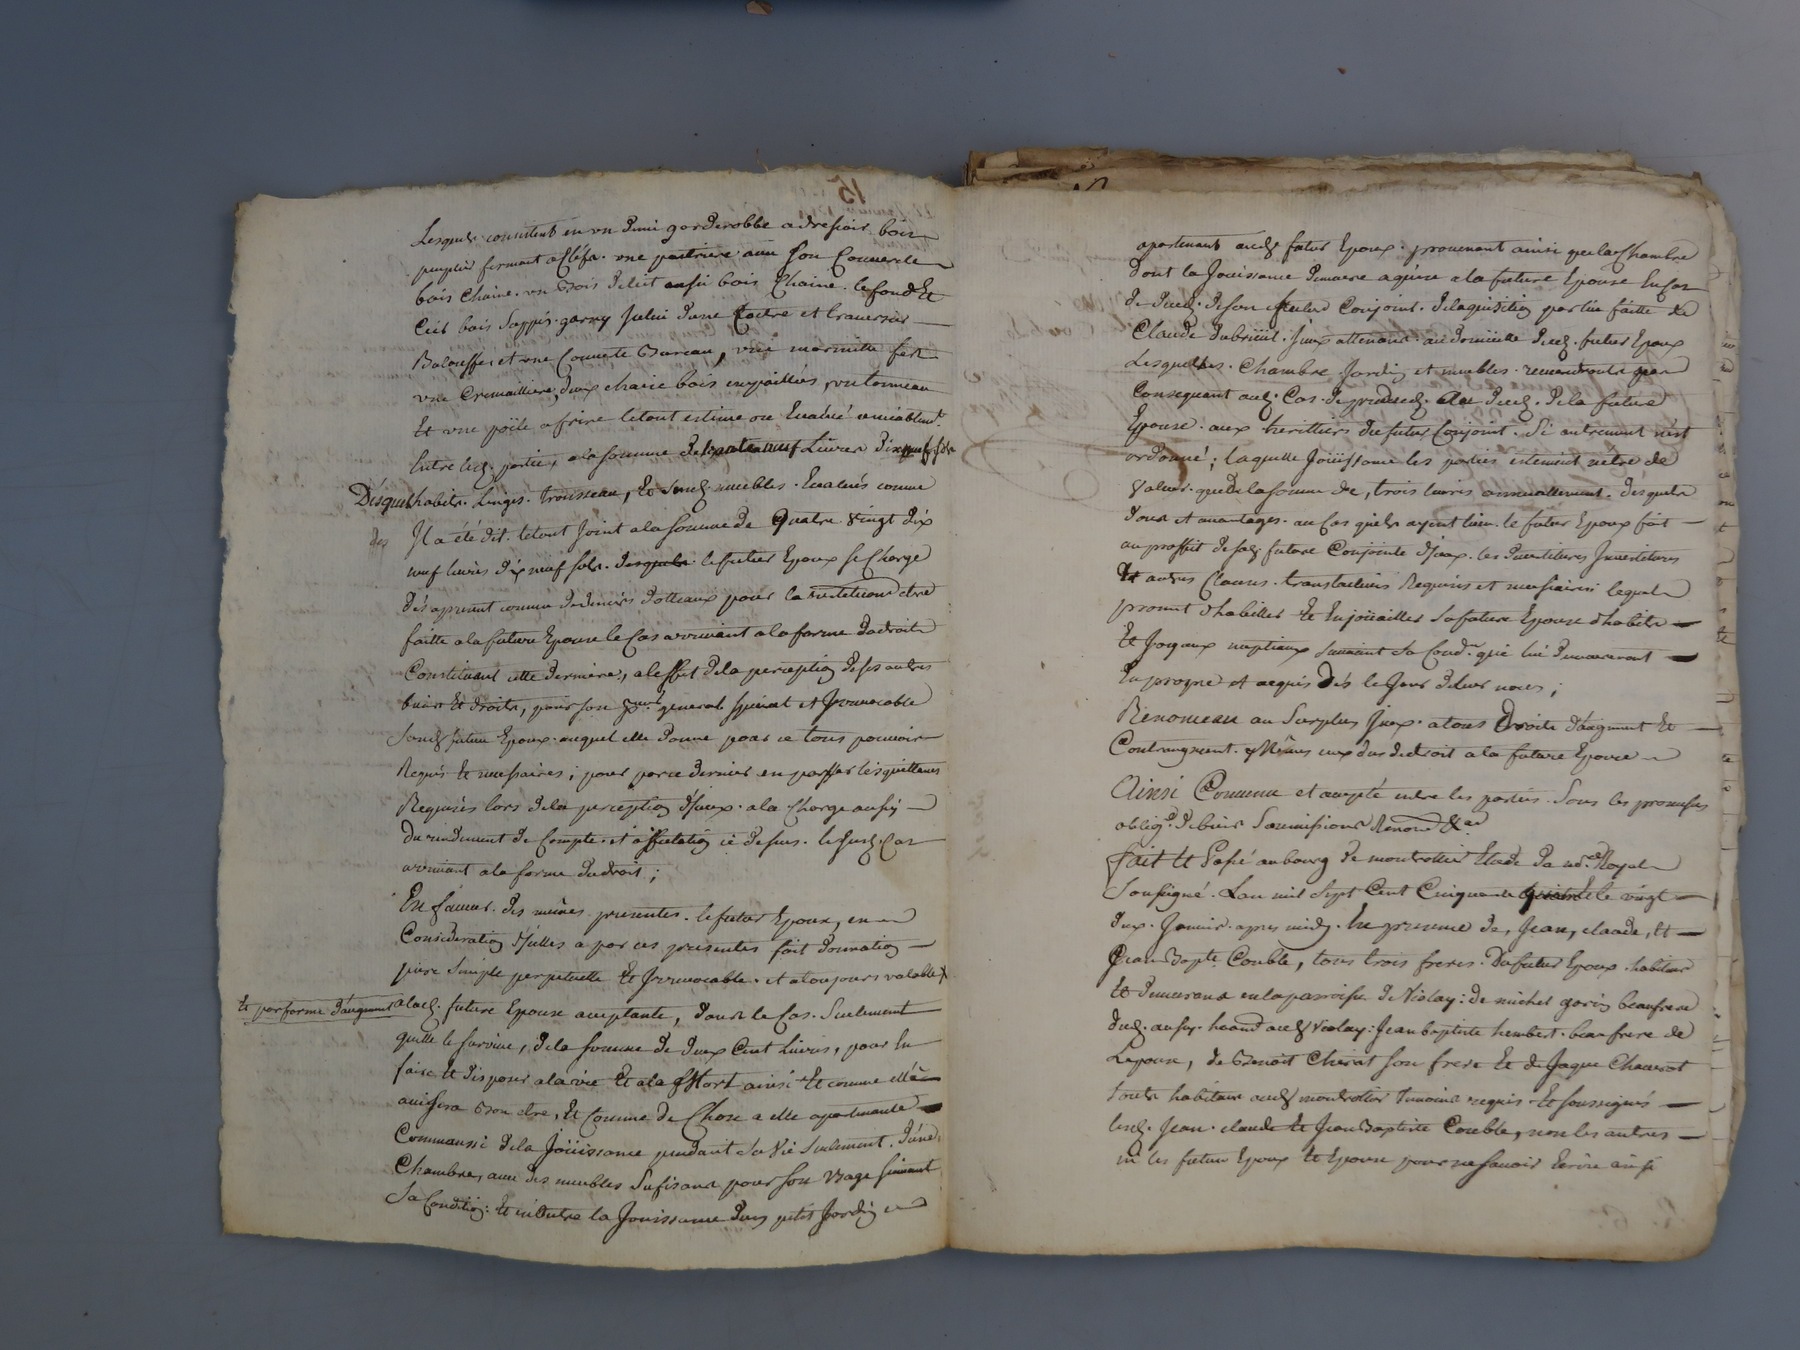 15
Lesquels consistent en un demi garderobbe a dressoir bois
peuplier fermant a Cléfs. une paitriere avec son Couvercle
bois Chaine. un bois de lit aussi bois Chaine. le fond Et
Ciel bois Sappin. garny Jcelui d'une Coëtre et traversier
Balouffe, et une Couverte Bureau, une marmitte fert
une Cremailliere, deux chaise bois enpaillées, un tonneau
Et une poële a frire le tout estimé ou Evalué amiablemt.
Entre lesd. parties, a la somme de Livres dixneuf sols
Désquels habits. Linges. trousseau, Et susd. meubles. Evalués comme
Jl a été dit. le tout Joint a la somme de Quatre vingt dix
des
neuf livres dix neuf sols. desquels le futur Epoux se Charge
dés apresent comme de deniers dotteaux pour la restitution etre
faitte a la future Epouse le Cas arrivant a la forme du droit
Constituant cette derniere, a l'effet de la perception de ses autres
biens Et droits, pour son general special et Jrrevocable
sond. futur Epoux. auquel elle donne pour ce tous pouvoir
Requis Et nessaires; pour par ce dernier en passer les quittances
Requises lors de la perception d'Jceux. a la Charge aussy
du rendement de Compte. et affectation ci dessus. le susd. Cas
arrivant a la forme du droit;
En faveur. des mêmes presentes. le futur Epoux, en
Consideration d'Jcelles a par ces presentes fait donnation
pure Simple perpetuelle Et Jrrevocable. et a toujours valable
Et par forme d'augment a lad. future Epouse acceptante, dans le Cas. Seulement
qu'elle le survive, de la somme de deux Cent Livres, pour En
faire Et disposer a la vie Et a la Mort ainsi Et comme elle
avisera Bon etre, Et Comme de Chose a elle apartenante
Commaussi de la Joüissance pendant sa Vie Seulement. d'une
Chambre, avec des meubles sufisans pour son Usage suivant
Sa Condition: Et en Outre la Jouissance d'un petit Jardin
apartenant aud. futur Epoux. provenant ainsi que la Chambre
dont la Jouissance demeure aquise a la future Epouse En cas
de deced. de son futur Conjoint. de l'aquisition par lui faitte de
Claude dubreüil. Jceux attenans. au domicille dud. futur Epoux
Lesquelles. Chambre. Jardin et meubles. reviendronts par
Consequent aud. Cas de predeced. deced. de la future
Epouse. aux herittiers du futur Conjoint. Si autrement n'est
ordonné; laquelle Joüissance les parties estiment n'étre de
valeur. que de la somme de, trois livres annuellement. désquels
dons et avantages. au Cas qu'ils ayent lieu. le futur Epoux fait
au proffit de sad. future Conjointe d'Jceux. les devestitures Jnvestitures
Et autres Clauses. translatives Requises et nessaires lequel
promet d'habiller Et Enjoüailler sa future Epouse d'habits
Et Joyaux nuptiaux suivant sa Condon. qui lui demeureront
En propre et acquis dés le Jour de leur noces;
Renonceant au Surplus Jceux. a tous Droits d'augment Et
Contraugment. Mêmes ceux dus de droit a la future Epouse
Ainsi Convenu et accepté entre les parties. Sous les promesses
obligons. de biens Soumissions Renon & ce
fait Et Passé au bourg de montrottier Etude du nore. Royal
Soussigné. L'an mil Sept Cent Cinquante le vingt
deux. Janvier. apres midy. En presence de, Jean, claude, Et
Jean Bapte. Couble, tous trois freres. du futur Epoux. habitans
Et demeurans en la parroisse de Violay: de michel gorin beaufrere
dud. aussy. habitant aud. Violay: Jean baptiste humbert. beaufrere de
Lepouse, de Benoit Chirat son frere Et de Jaque Chavrot
touts habitans aud. montrottier temoins requis. Et soussignés
lesd. Jean. claude Et Jean Baptiste Couble, non les autres
ni les futurs Epoux Et Epouse pour ne savoir Ecrire ainsi